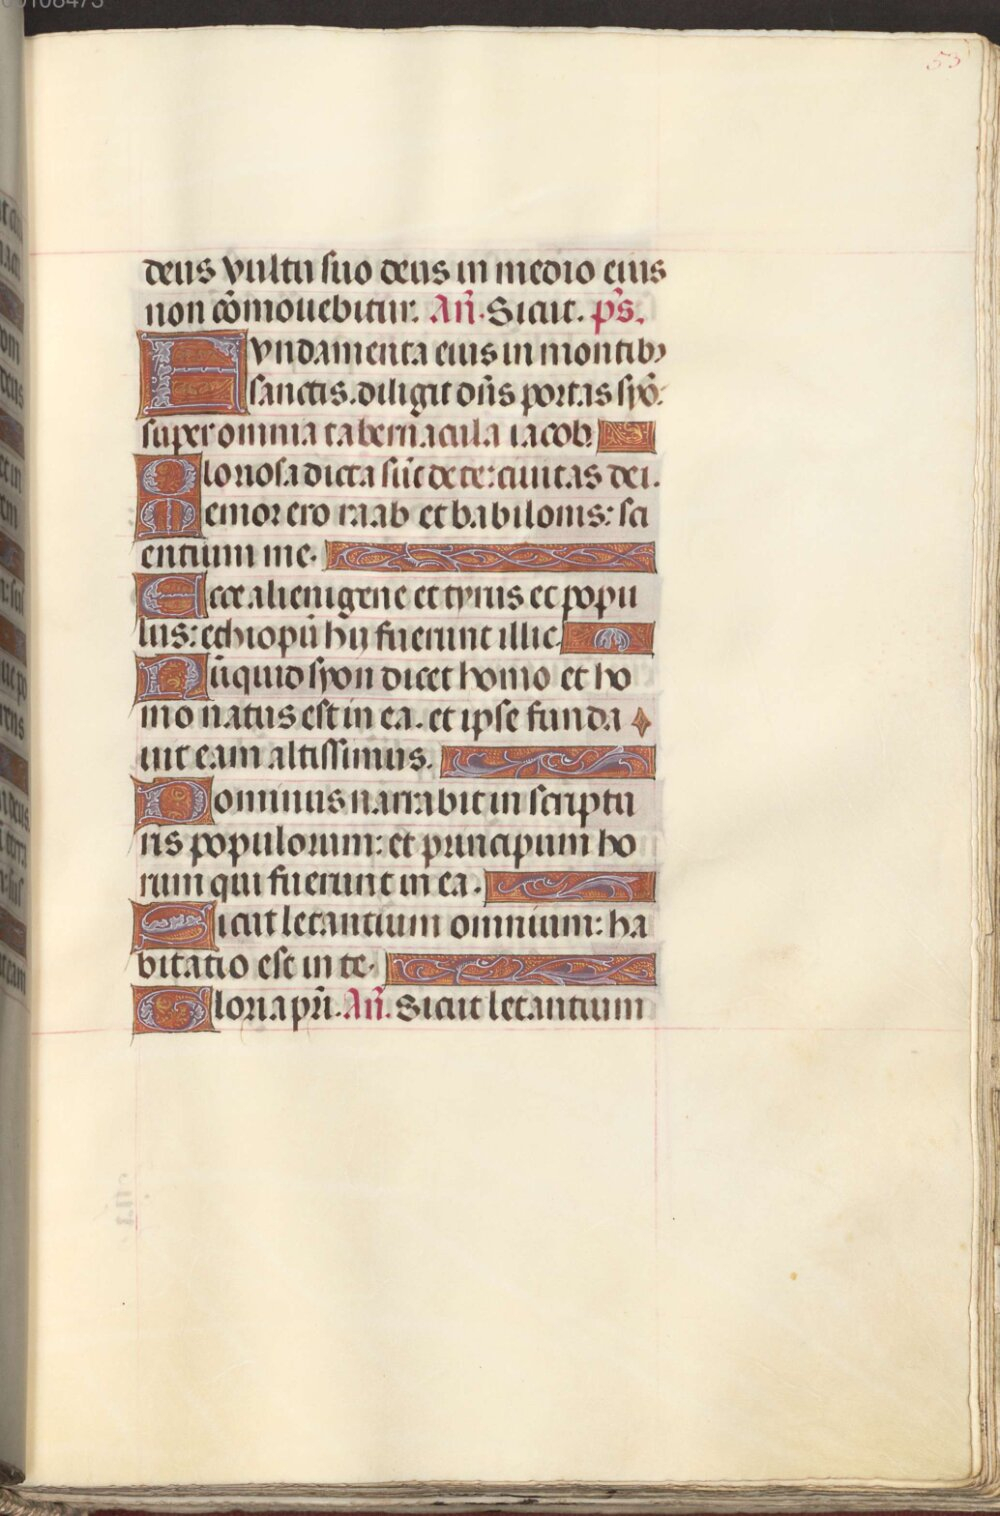 53
deus vultu suo deus in medio eius
non cōmouebitur. Añ. Sicut. p̄s.
Fvndamenta eius in montibꝫ
sanctis. diligit dñs portas syō:
super omnia tabernacula iacob.
Gloriosa dicta sūt de te: ciuitas dei.
Memor ero raab et babilonis: sci
entium me.
Ecce alienigene et tyrus et popu
lus: ethiopū hij fuerunt illic.
Nūquid syon dicet homo et ho
mo natus est in ea. et ipse funda
uit eam altissimus.
Dominus narrabit in scriptu
ris populorum: et principum ho
rum qui fuerunt in ea.
Sicut letantium omnium: ha
bitatio est in te.
Gloria pr̄i. Añ. Sicut letantium